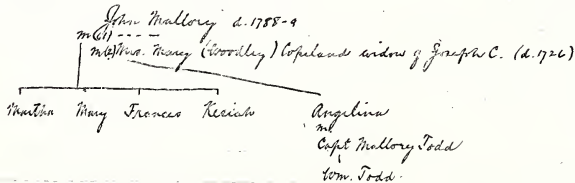 John Mallory d. 1788-9
m(1) ----
m(2) Mrs. Mary (Woodley) Copeland widow of Joseph C. (d. 1726)
Martha Mary Frances Keziah Angelina
m.
Capt Mallory Todd
Wm. Todd.